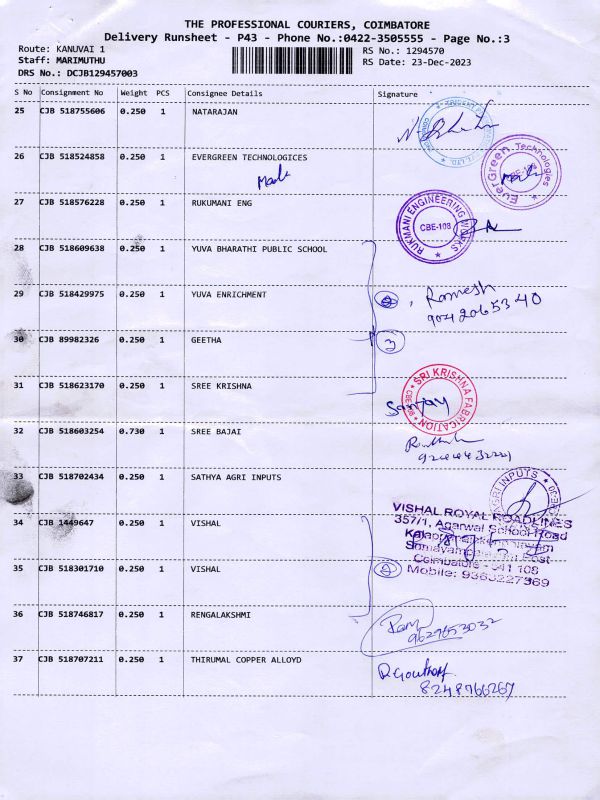 THE PROFESSIONAL COURIERS, COIMBATORE
Delivery Runsheet - P43 - Phone No.:0422-3505555 - Page No.:3
Route: KANUVAI 1
RS No.: 1294570
Staff: MARIMUTHU
RS Date: 23-Dec-2023
DRS No.: DCJB129457003
S No Consignment No Weight PCS Consignee Details Signature
25 CJB 518755606 0.250 1 NATARAJAN
26 CJB 518524858 0.250 1 EVERGREEN TECHNOLOGICES
EverGreen Technologies
CBE-108
27 CJB 518576228 0.250 1 RUKUMANI ENG
RUKMANI ENGINEERING WORKS
CBE-108
28 CJB 518609638 0.250 1 YUVA BHARATHI PUBLIC SCHOOL
29 CJB 518429975 0.250 1 YUVA ENRICHMENT
Ramesh
9042065340
30 CJB 89982326 0.250 1 GEETHA
3
31 CJB 518623170 0.250 1 SREE KRISHNA
SRI KRISHNA FABRICATION
Sanjay
32 CJB 518603254 0.730 1 SREE BAJAI
33 CJB 518702434 0.250 1 SATHYA AGRI INPUTS
AGRI INPUTS
34 CJB 1449647 0.250 1 VISHAL
VISHAL ROYAL ROADLINES
357/1, Agarwal School Road
Somayampalayam Post
Coimbatore - 641 108
Mobile: 9363227369
35 CJB 518301710 0.250 1 VISHAL
36 CJB 518746817 0.250 1 RENGALAKSHMI
Ram
9629653032
37 CJB 518707211 0.250 1 THIRUMAL COPPER ALLOYD
8248766267